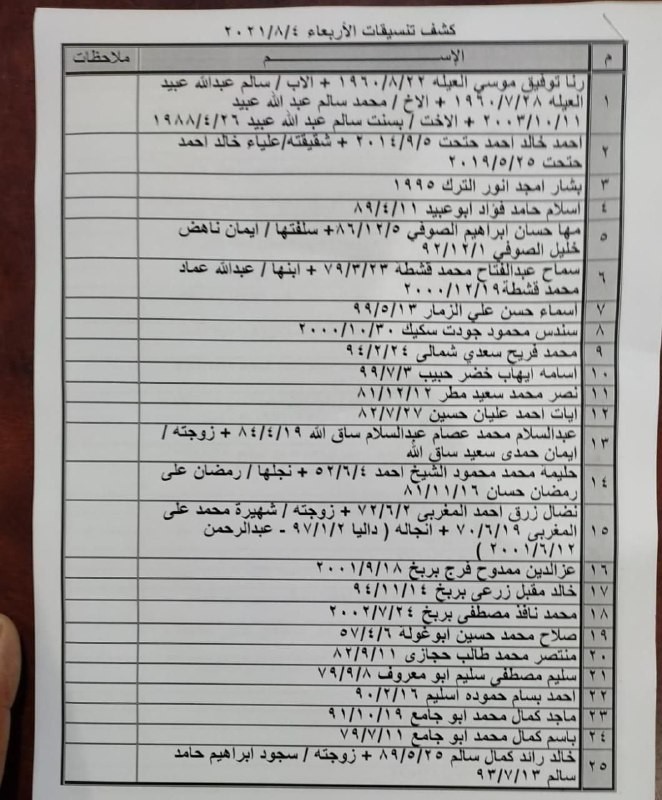 كشف تنسيقات الأربعاء ٢٠٢١/٨/٤
م الإســـم ملاحظات
١ رنا توفيق موسي العيله ١٩٦٠/٨/٢٢ + الاب / سالم عبدالله عبيد
العيله ١٩٦٠/٧/٢٨ + الاخ / محمد سالم عبد الله عبيد
٢٠٠٣/١٠/١١ + الاخت / بسنت سالم عبد الله عبيد ١٩٨٨/٤/٢٦
٢ احمد خالد احمد حتحت ٢٠١٤/٩/٥ + شقيقته/علياء خالد احمد
حتحت ٢٠١٩/٥/٢٥
٣ بشار امجد انور الترك ١٩٩٥
٤ اسلام حامد فؤاد ابوعبيد ٨٩/٤/١١
٥ مها حسان ابراهيم الصوفي ٨٦/١٢/٥+ سلفتها / ايمان ناهض
خليل الصوفي ٩٢/١٢/١
٦ سماح عبدالفتاح محمد قشطة ٧٩/٣/٢٣ + ابنها / عبدالله عماد
محمد قشطة٢٠٠٠/١٢/١٩
٧ اسماء حسن علي الزمار ٩٩/٥/١٣
٨ سندس محمود جودت سكيك ٢٠٠٠/١٠/٣٠
٩ محمد فريح سعدي شمالى ٩٤/٢/٢٤
١٠ اسامه ايهاب خضر حبيب ٩٩/٧/٣
١١ نصر محمد سعيد مطر ٨١/١٢/١٢
١٢ ايات احمد عليان حسين ٨٢/٧/٢٧
١٣ عبدالسلام محمد عصام عبدالسلام ساق الله ٨٤/٤/١٩ + زوجته /
ايمان حمدى سعيد ساق الله
١٤ حليمه محمد محمود الشيخ احمد ٥٢/٦/٤ + نجلها / رمضان على
رمضان حسان ٨١/١١/١٦
١٥ نضال زرق احمد المغربى ٧٢/٦/٢ + زوجته / شهيرة محمد على
المغربى ٧٠/٦/١٩ + انجاله ( داليا ٩٧/١/٢ - عبدالرحمن
٢٠٠١/٦/١٢ )
١٦ عزالدين ممدوح فرج بربخ ٢٠٠١/٩/١٨
١٧ خالد مقبل زرعى بربخ ٩٤/١١/١٤
١٨ محمد نافذ مصطفى بربخ ٢٠٠٢/٧/٢٤
١٩ صلاح محمد حسين ابوغوله ٥٧/٤/٦
٢٠ منتصر محمد طالب حجازى ٨٢/٩/١١
٢١ سليم مصطفي سليم ابو معروف ٧٩/٩/٨
٢٢ احمد بسام حموده اسليم ٩٠/٢/١٦
٢٣ ماجد كمال محمد ابو جامع ٩١/١٠/١٩
٢٤ باسم كمال محمد ابو جامع ٧٩/٧/١١
٢٥ خالد رائد كمال سالم ٨٩/٥/٢٥ + زوجته / سجود ابراهيم حامد
سالم ٩٣/٧/١٣